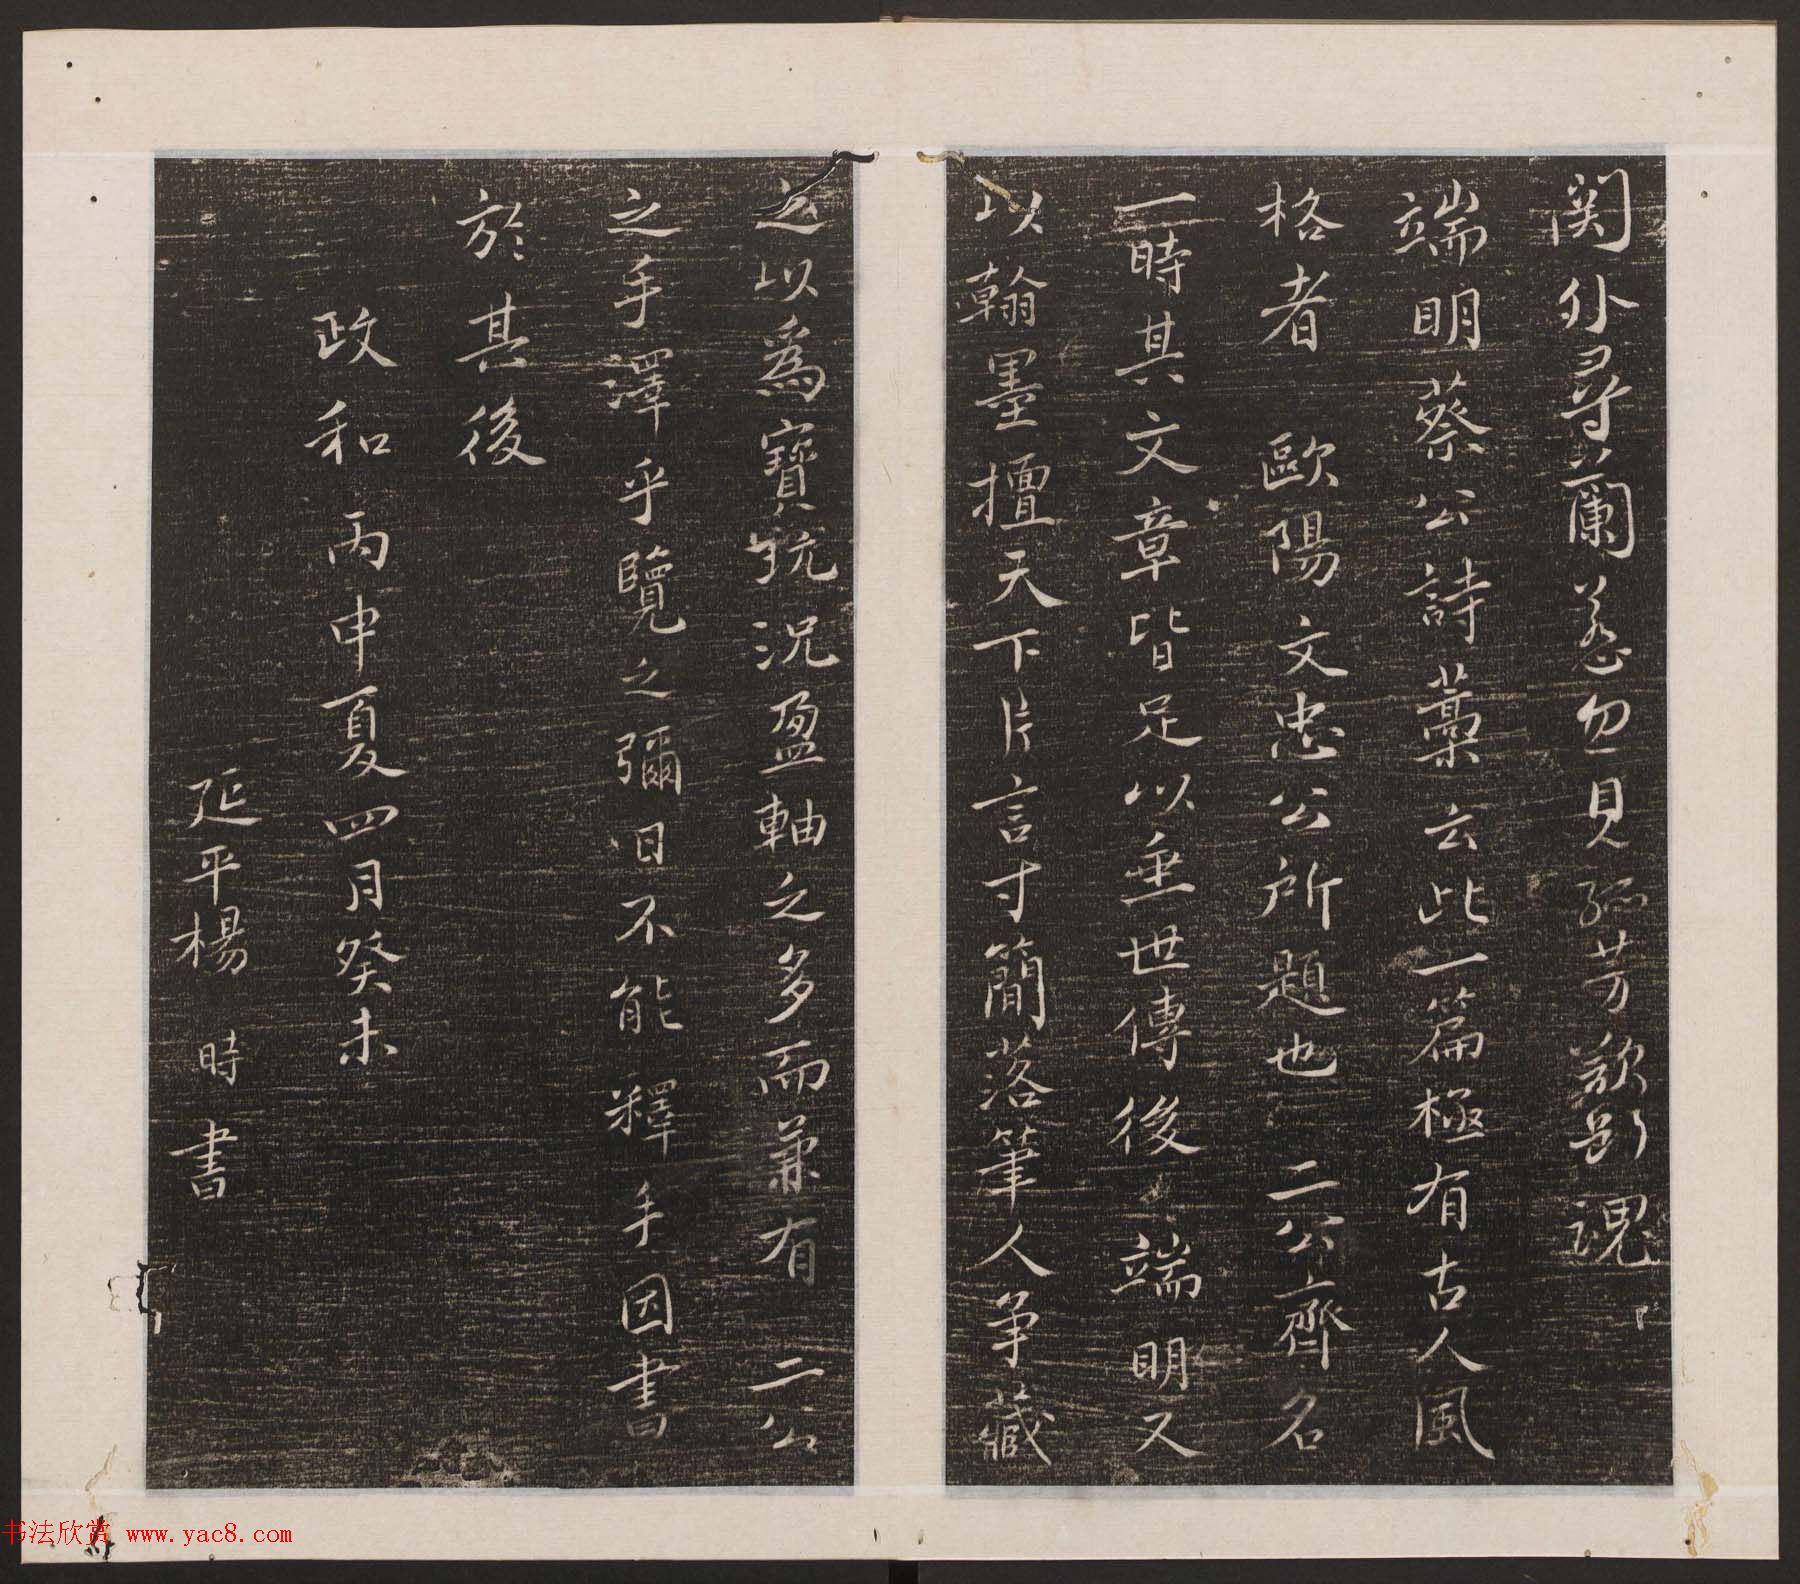 関外尋蘭蕙忽見孤芳欲斷魂
端明蔡公詩藁云此一篇極有古人風
格者 歐陽文忠公所題也 二公齊名
一時其文章皆足以垂世傳後 端明又
以翰墨擅天下片言寸簡落筆人争藏
之以為寶玩況盈軸之多而兼有 二公
之手澤乎覽之彌日不能釋手因書
於其後
政和丙申夏四月癸未
延平楊 時 書
书法欣赏 www.yac8.com